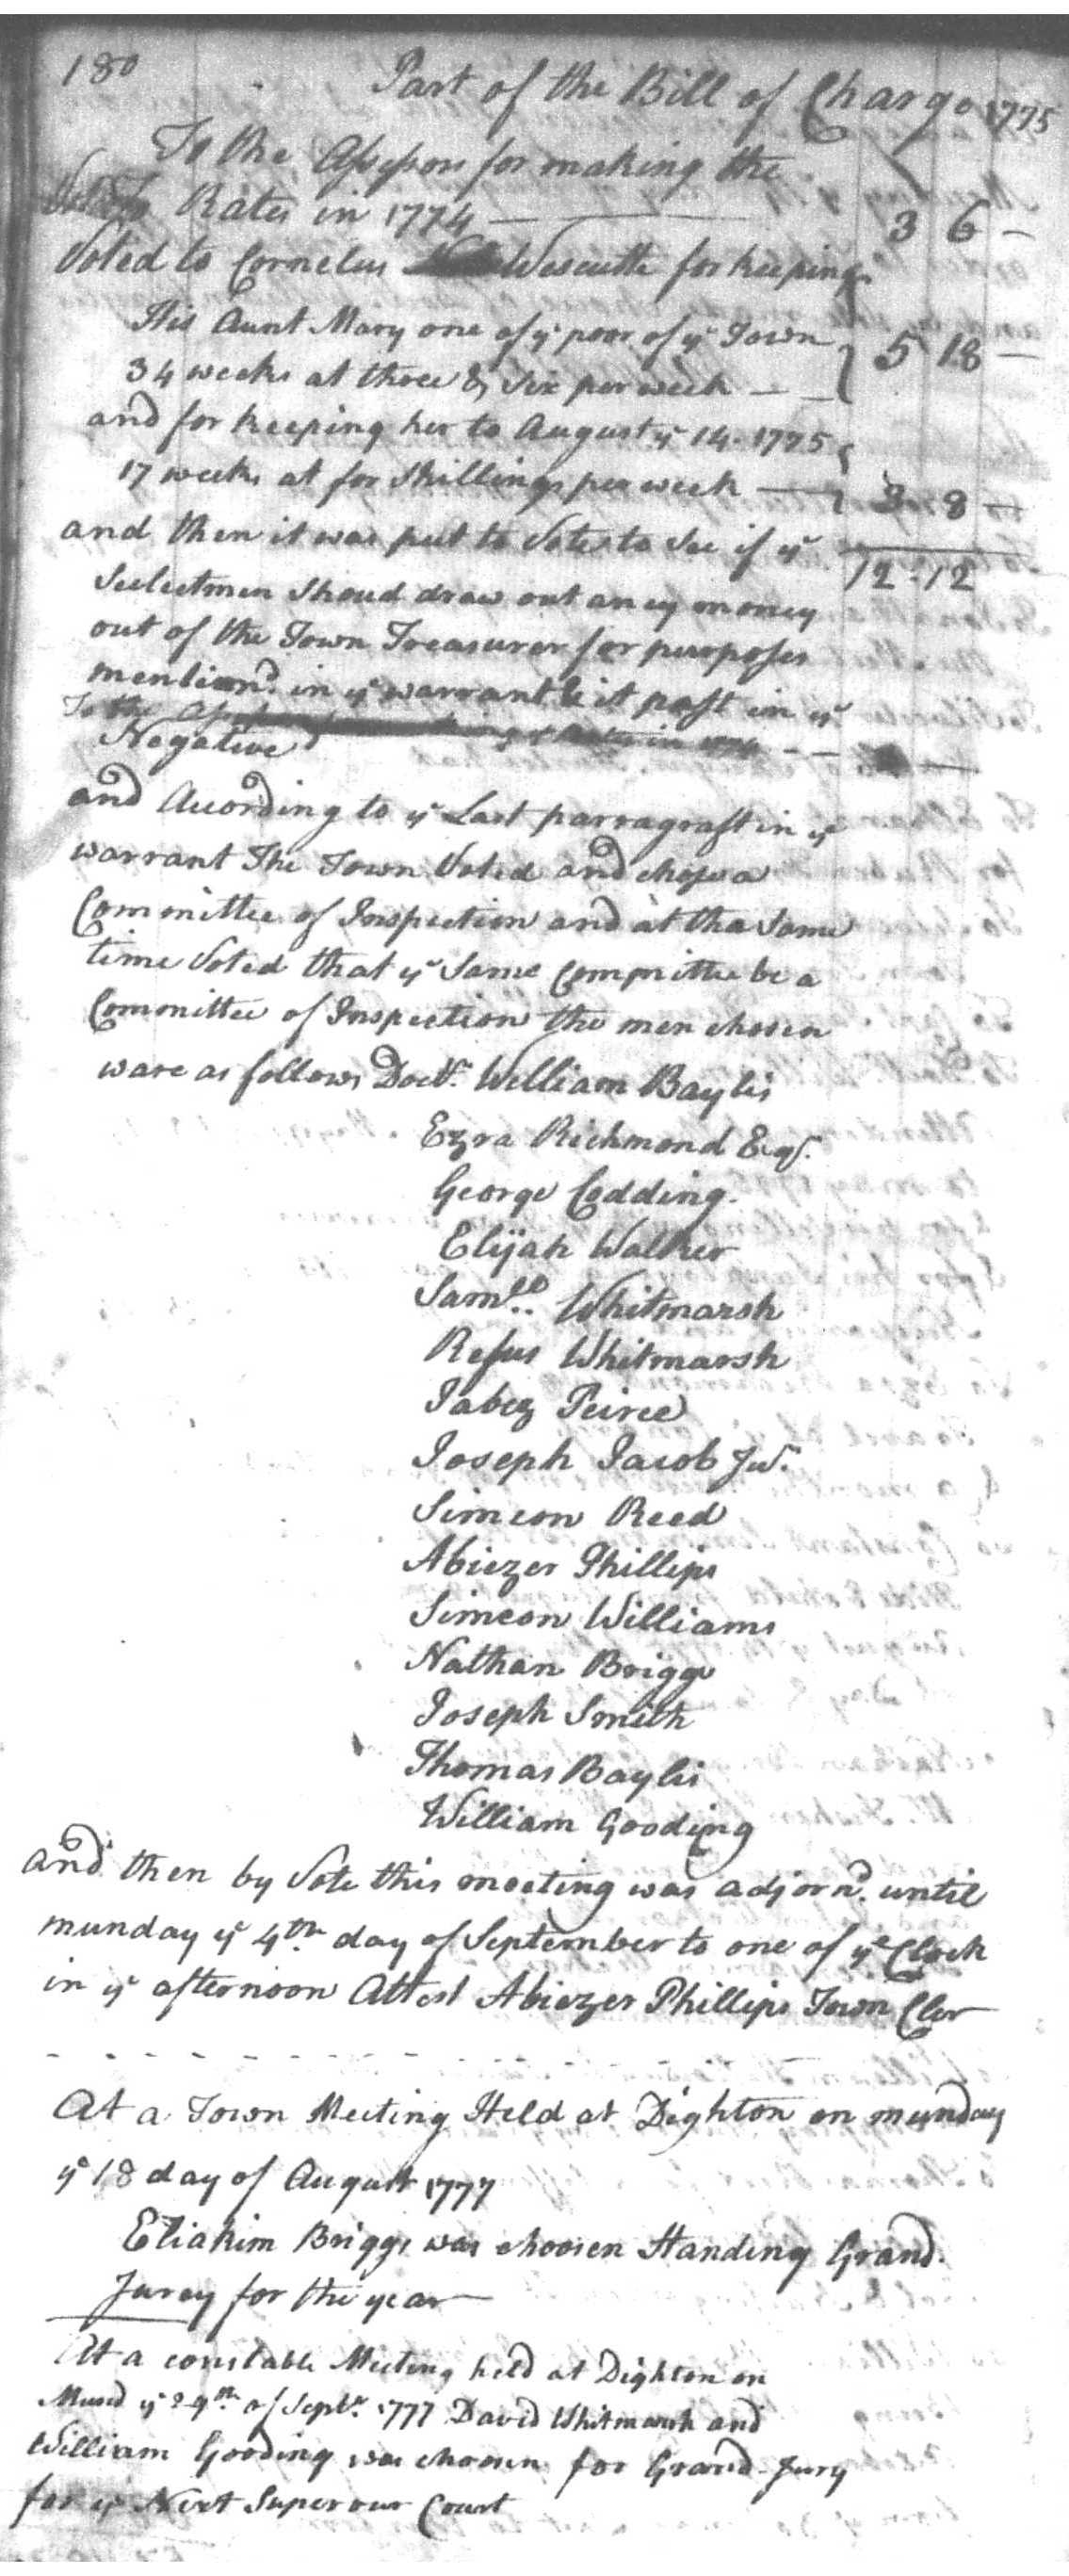 180
Part of the Bill of Charge 1775
To the Assessors for making the
Rates in 1774 — 3 6 —
Voted to Cornelius Wescutte for keeping
His Aunt Mary one of yᵉ poor of yᵉ Town
34 weeks at three & Six per week — — 5 18 —
and for keeping her to August yᵉ 14. 1775
17 weeks at for Shillings per week — 3 8 —
and then it was put to Vote to See if yᵉ 12 - 12
Selectmen Shoud draw out aney money
out of the Town Treasurer for purposes
mentiond. in yᵉ warrant & it past in yᵉ
To the in 1774 — —
Negative
and Acording to yᵉ Last parragraft in yᵉ
warrant The Town Voted and chose a
Committee of Inspection and at tha Same
time Voted that yᵉ Same Committe be a
Committee of Inspection the men chosen
ware as follows Docʳ. William Baylis
Ezra Richmond Esqʳ.
George Codding.
Elijah Walker
Samˡˡ. Whitmarsh
Refus Whitmarsh
Jabez Peirce
Joseph Jacob Juʳ.
Simeon Reed
Abiezer Phillips
Simeon Williams
Nathan Briggs
Joseph Smith
Thomas Baylis
William Gooding
and then by Vote this meeting was adjornᵈ. until
munday yᵉ 4ᵗʰ. day of September to one of yᵉ Clock
in yᵉ afternoon Attest Abiezer Phillips Town Cler
At a Town Meeting Held at Dighton on munday
yᵉ 18 day of August 1777
Eliakim Briggs was choosen Standing Grand.
Jurey for the year
At a constable Meeting held at Dighton on
Mund yᵉ 29ᵗʰ. of Septʳ. 1777 David Whitmarsh and
William Gooding was choosen for Grand Jury
for yᵉ Next Superour Court